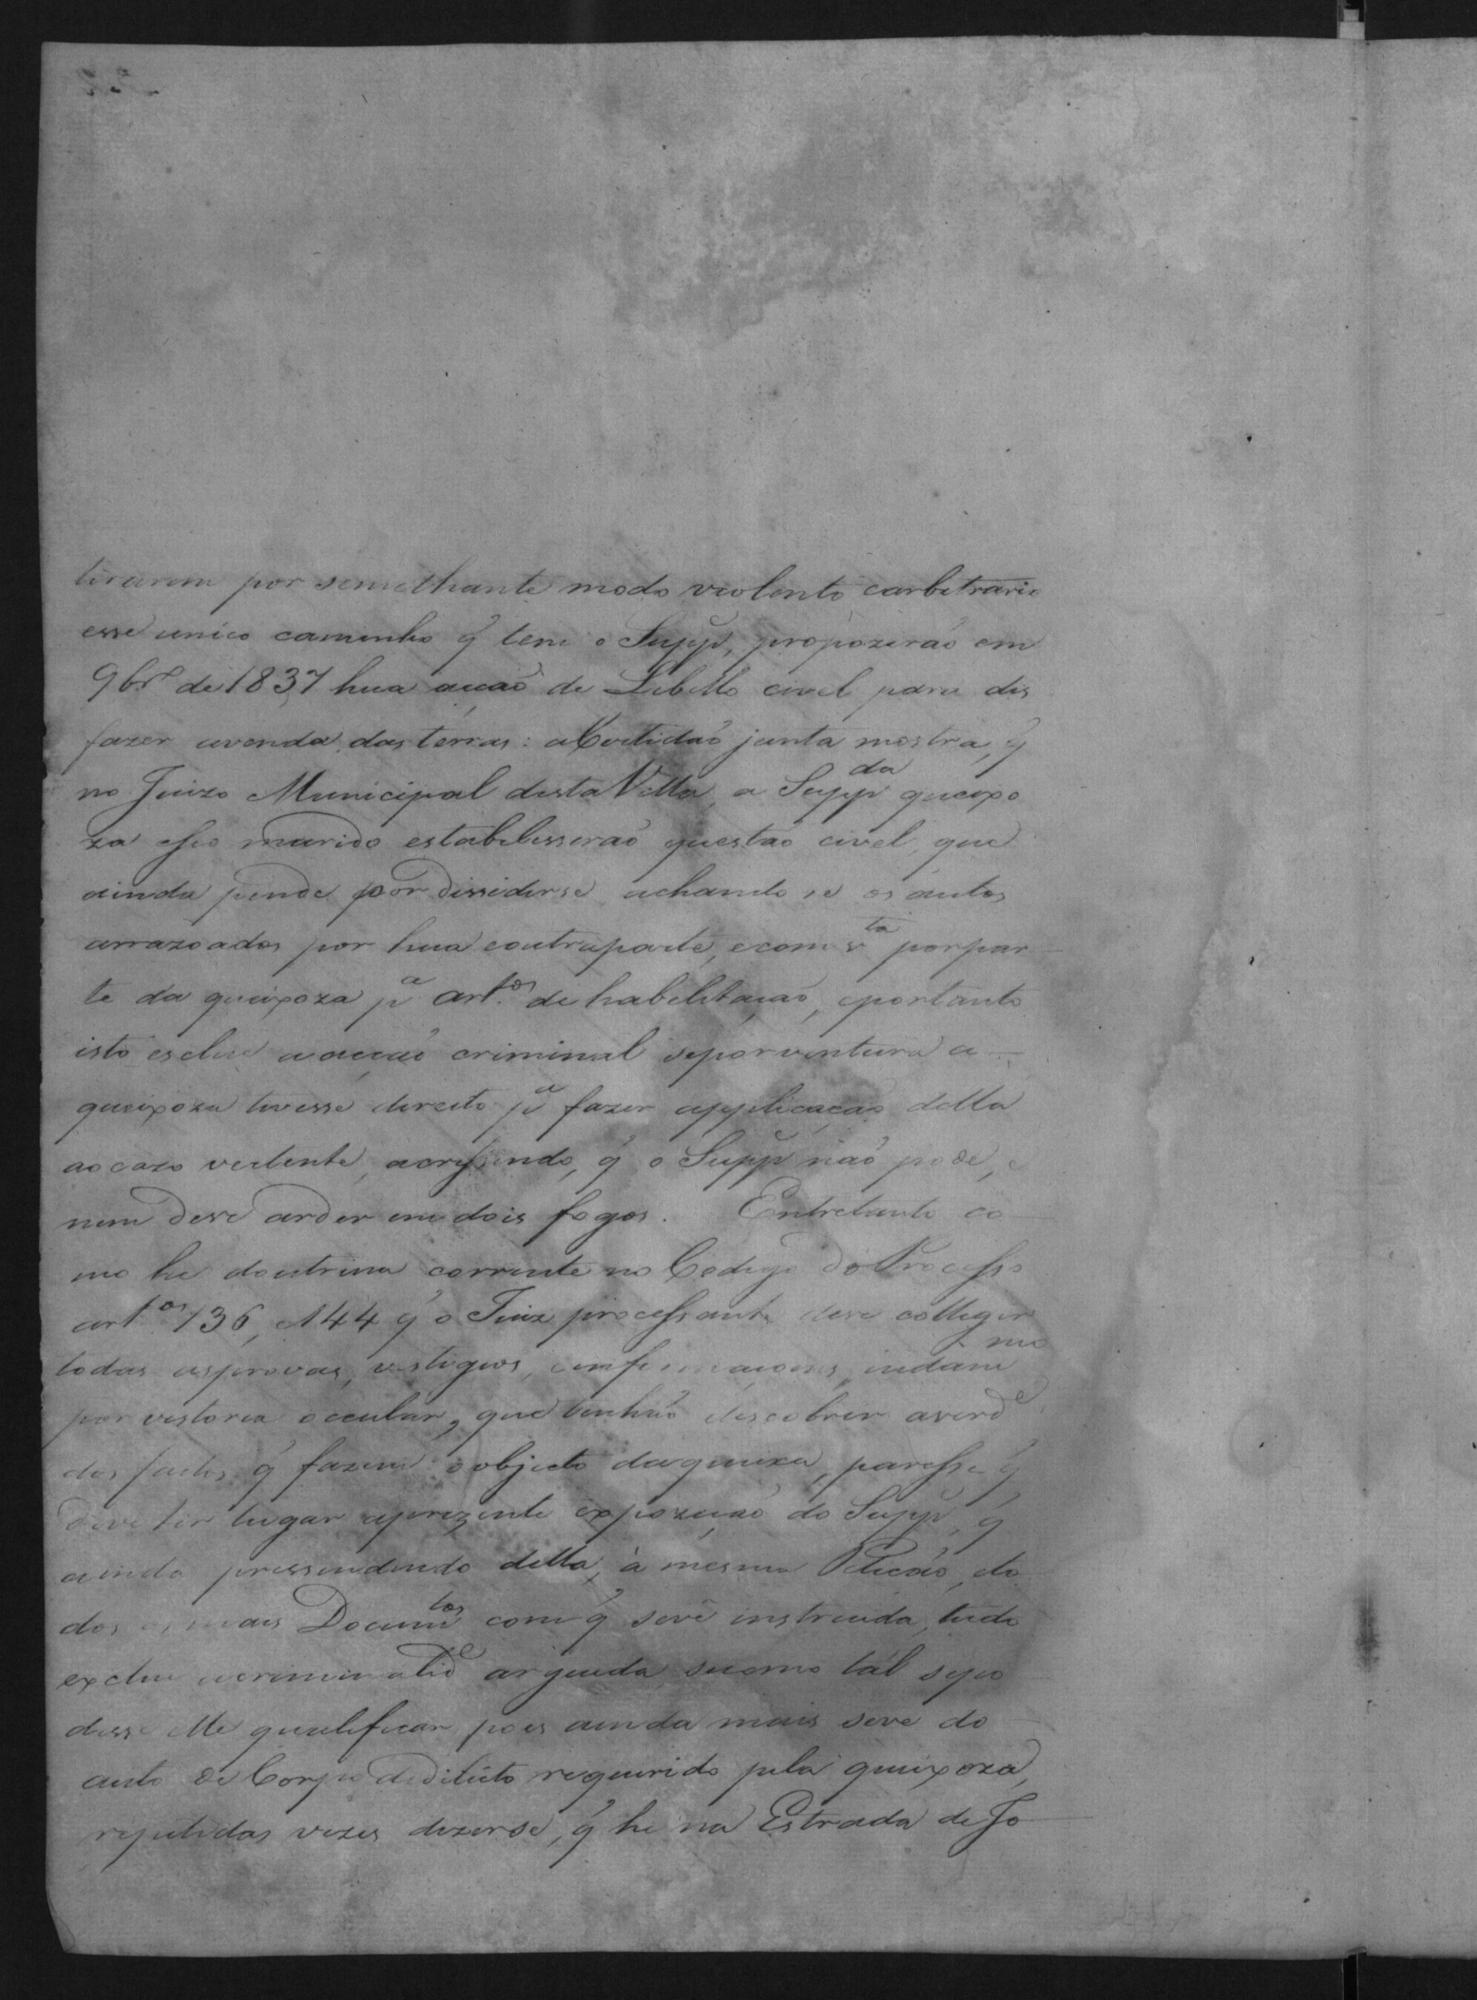 tirarem por semelhante modo violento earbitrario
esse unico caminho q̃ tem o Supp.e, propozerão em
9br.o de 1837 hua acção de Libello civel para dis
fazer avenda das terras: aCertidão junta mostra, q̃
no Juizo Municipal desta Villa, a Supp.da queixo
za eseo marido estabelesserão questão civel, que
ainda pende por dissidirse achando se os autos
arrazoados por hua contraparte, ecom v.ta por par
te da queixoza p.a art.os de habelitação, eportanto
isto esclue aacção criminal seporventura a
queixoza tivesse direito p.a fazer applicação della
aocazo vertente, acressendo, q̃ o Supp.e não pode, e
nem deve arder em dois fogos. Entretanto co
mo he doutrina corrente no Codigo do Processo
art.os 136, e144 q̃ o Juiz processante deve colligir
todas asprovas, vestigios, emformaçoens, indamo
por vestoria occular, que tenhão descobrir averd.e
dos factos q̃ fazem oobjecto daqueixa, paresse q̃
deve ter lugar aprezente expozição do Supp.e, q̃
ainda pressendendo della, à mesma Petição, do
dos os mais Docum.tos com q̃ sevê instruida, tudo
exclue acriminalid.e arguida secomo tál sepo
desse elle qualificar, pois ainda mais seve do
auto de Corpo dedilicto requirido pela queixoza,
repetidas vezes dizerse, q̃ he na Estrada de Jo